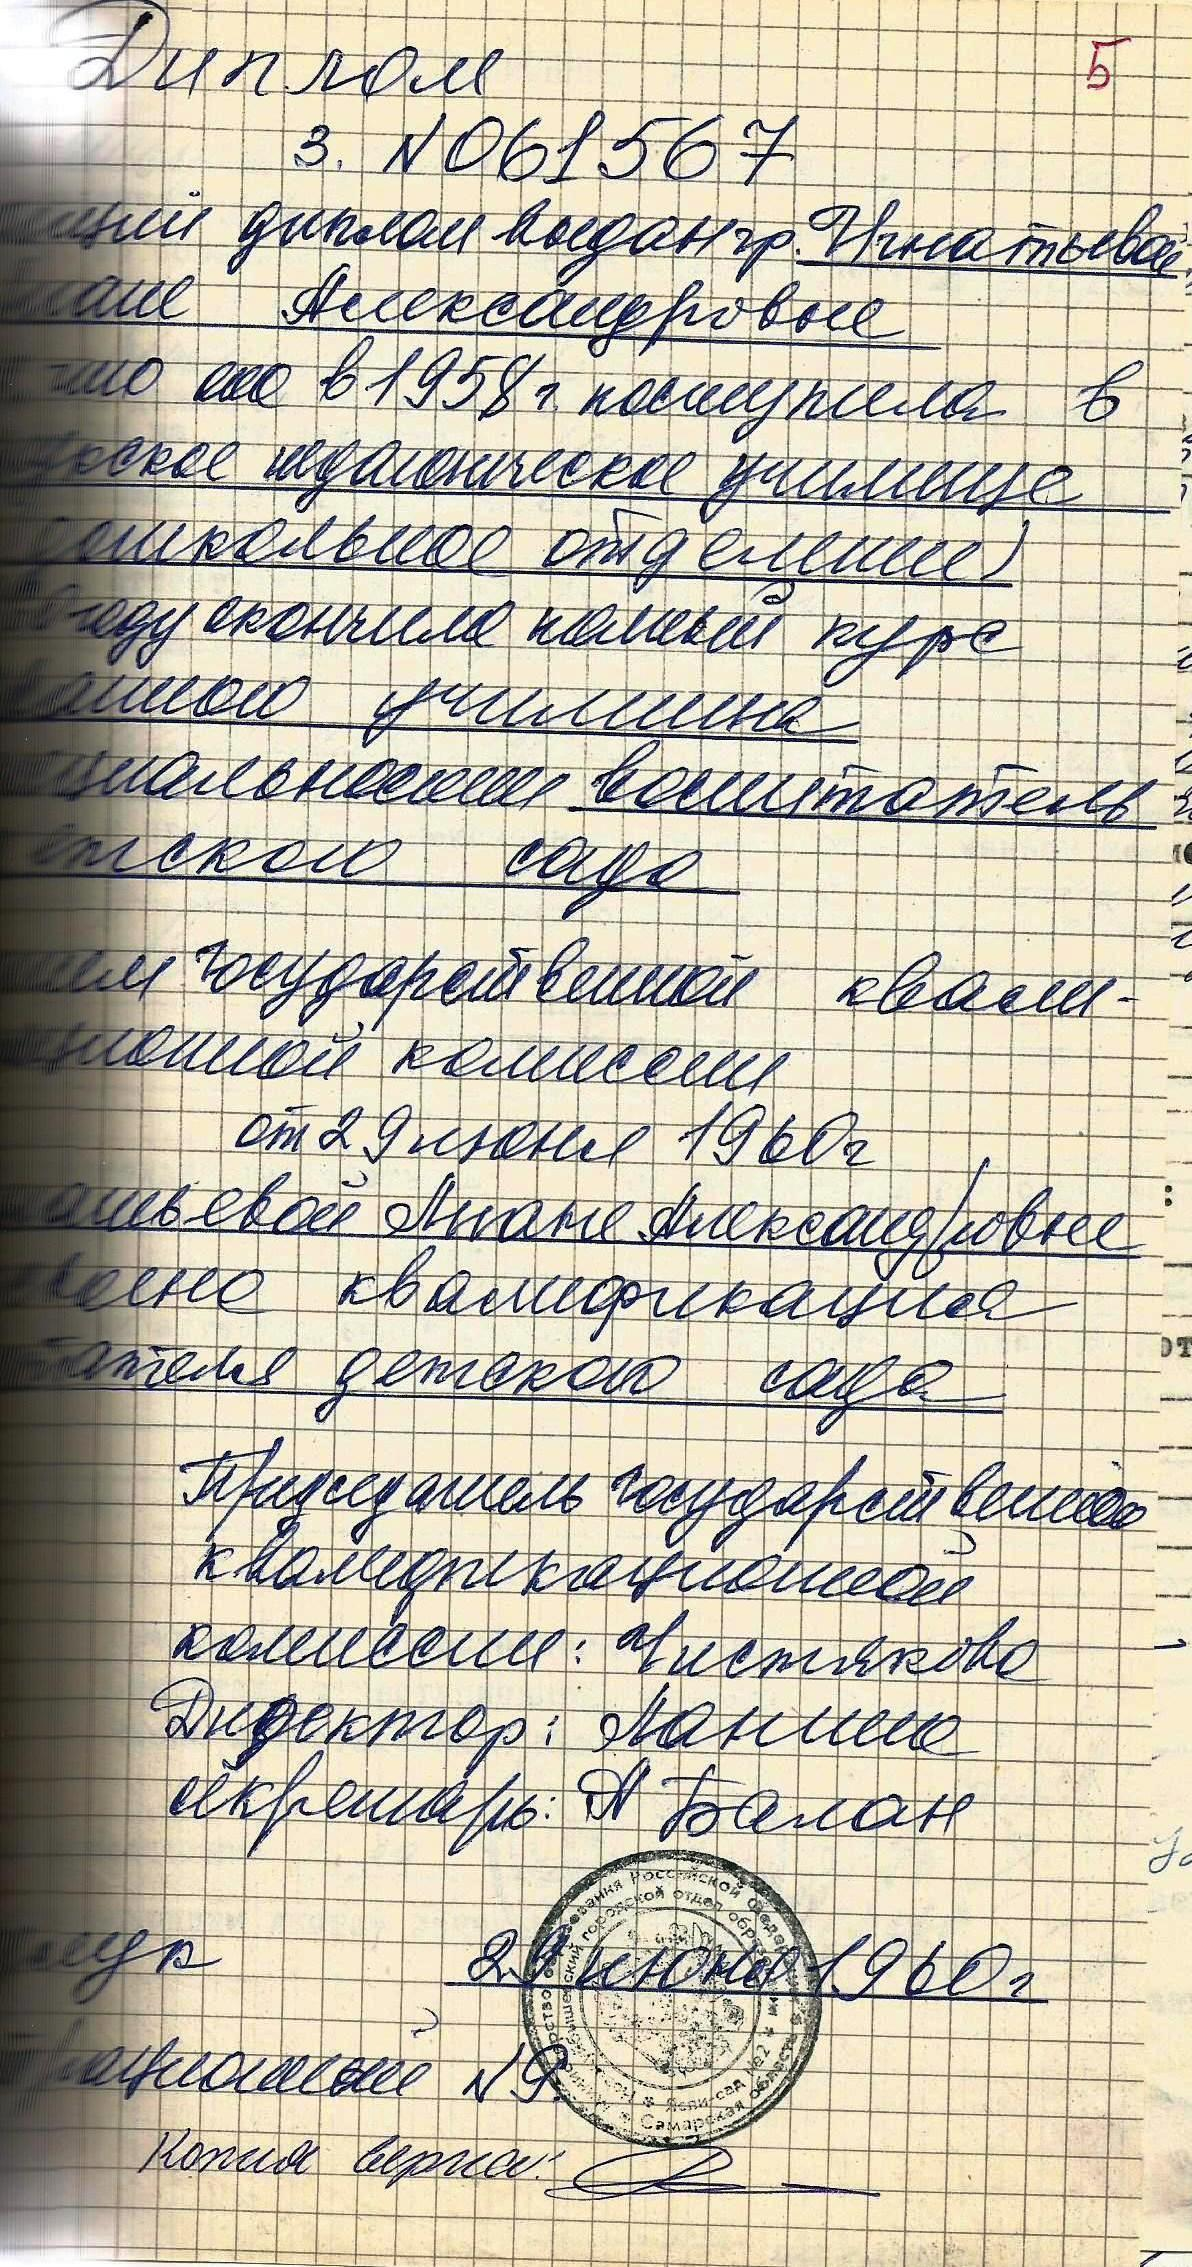 5
Диплом
З. N061567
щий диплом выдан гр. Игнатьевой
Александровне
что она в 1958 г. поступила в
ское педагогическое училище
дошкольное отделение)
году окончила полный курс
ванного училища
циальности воспитатель
етского сада
ием государственной квали-
ационной комиссии
от 29 июня 1960г
атьевой Лиане Александровне
воена квалификация
тателя детского сада
Председатель государственной
квалификационной
комиссии: Чистякова
Директор: Ланина
секретарь: А Балан
29 июня 1960г
рационный N9.
Копия верна: